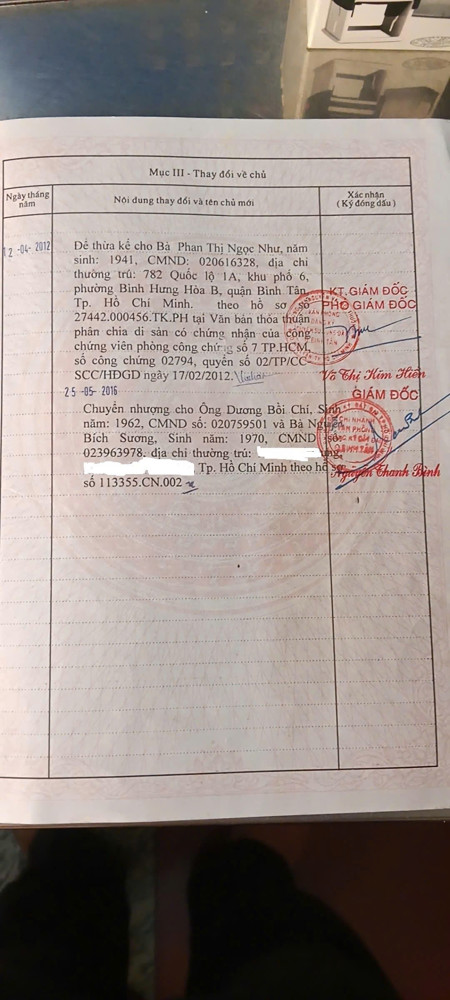 Mục III - Thay đổi về chủ
Ngày tháng năm
Nội dung thay đổi và tên chủ mới
Xác nhận
( Ký đóng dấu )
12 -04- 2012
Để thừa kế cho Bà Phan Thị Ngọc Như, năm
sinh: 1941, CMND: 020616328, địa chỉ
thường trú: 782 Quốc lộ 1A, khu phố 6,
phường Bình Hưng Hòa B, quận Bình Tân,
Tp. Hồ Chí Minh. theo hồ sơ số
27442.000456.TK.PH tại Văn bản thỏa thuận
phân chia di sản có chứng nhận của công
chứng viên phòng công chứng số 7 TP.HCM,
số công chứng 02794, quyển số 02/TP/CC-
SCC/HĐGD ngày 17/02/2012.
KT. GIÁM ĐỐC
PHÓ GIÁM ĐỐC
Võ Thị Kim Hiền
25 -05- 2016
Chuyển nhượng cho Ông Dương Bồi Chí, Sinh
năm: 1962, CMND số: 020759501 và Bà Nguyễn
Bích Sương, Sinh năm: 1970, CMND số:
023963978. địa chỉ thường trú:
Tp. Hồ Chí Minh theo hồ sơ
số 113355.CN.002
GIÁM ĐỐC
Nguyễn Thanh Bình